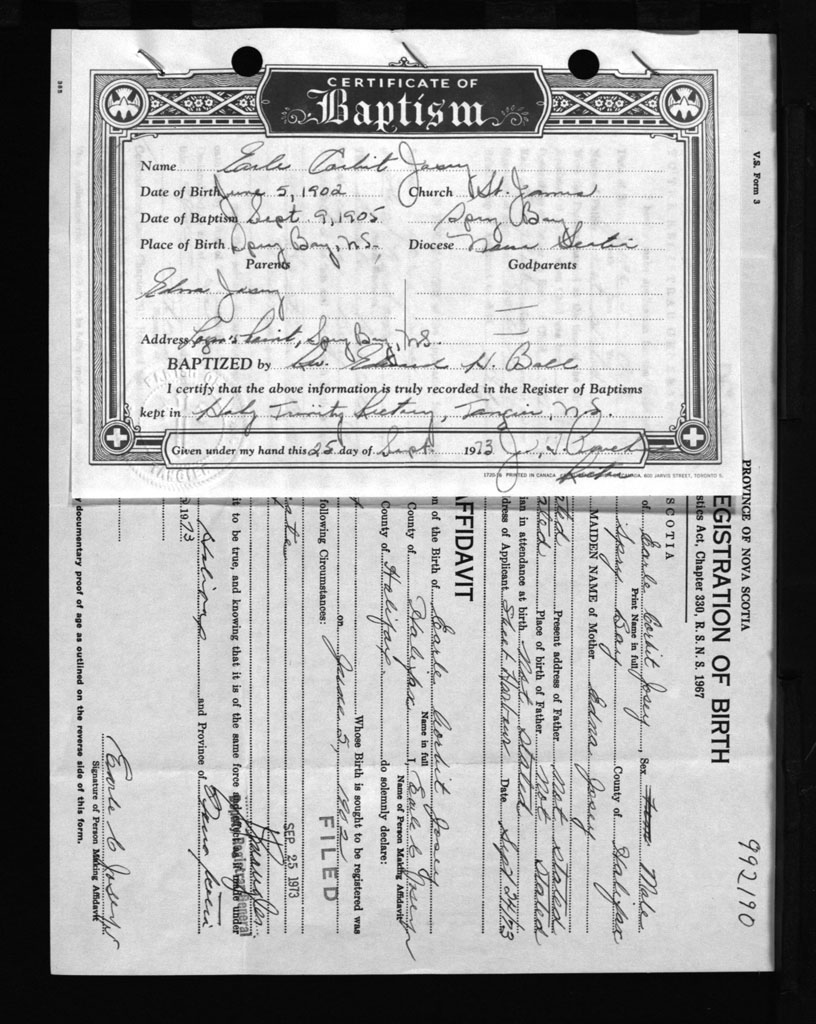 CERTIFICATE OF
Baptism
Name Earle Corbit Josey
Date of Birth June 5, 1902 Church St. James
Date of Baptism Sept. 9, 1905 Spry Bay
Place of Birth Spry Bay, N.S. Diocese Nova Scotia
Parents Godparents
Edna Josey
Address Spry Bay, N.S.
BAPTIZED by H. Ball
I certify that the above information is truly recorded in the Register of Baptisms
kept in Holy Trinity Rectory, Tangier, N.S.
Given under my hand this 25 day of Sept 1973
PRINTED IN CANADA 600 JARVIS STREET, TORONTO 5.
385
V.S. Form 3
992190
PROVINCE OF NOVA SCOTIA
EGISTRATION OF BIRTH
stics Act, Chapter 330, R. S. N. S. 1967
SCOTIA
of Earle Corbit Josey, Sex Male
Print Name in full
Spry Bay County of Halifax
MAIDEN NAME of Mother Edna Josey
ated Present address of Father Not stated
ated Place of birth of Father Not Stated
ian in attendance at birth Not Stated
dress of Applicant Sheet Harbour Date Sept 24/73
FFIDAVIT
on of the Birth of Earle Corbit Josey
Name in full
County of Halifax I, Earle C Joseph
Name of Person Making Affidavit
County of Halifax do solemnly declare:
Whose Birth is sought to be registered was
on June 5, 1902
following Circumstances:
FILED
SEP 25 1973
Registrar General
it to be true, and knowing that it is of the same force and effect as if made under
and Province of
1973
Earle C Joseph
Signature of Person Making Affidavit
y documentary proof of age as outlined on the reverse side of this form.